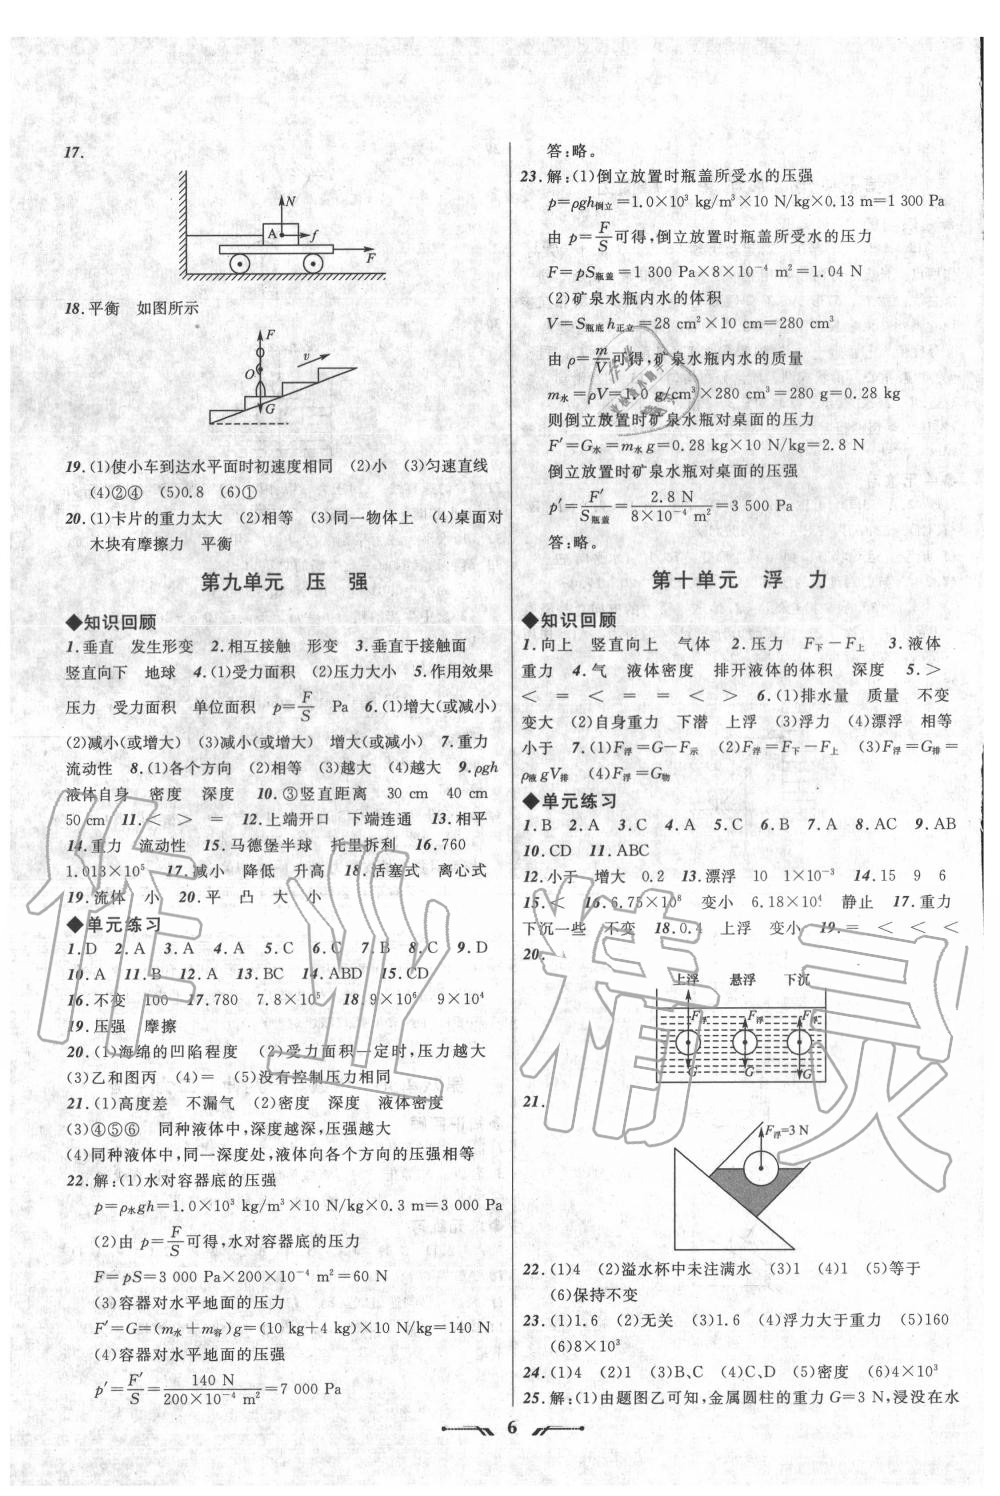 17.
N
A
f
F
18.平衡　如图所示
F
v
O
G
19.(1)使小车到达水平面时初速度相同　(2)小　(3)匀速直线
(4)②④　(5)0.8　(6)①
20.(1)卡片的重力太大　(2)相等　(3)同一物体上　(4)桌面对
木块有摩擦力　平衡
第九单元　压　强
◆知识回顾
1.垂直　发生形变　2.相互接触　形变　3.垂直于接触面
竖直向下　地球　4.(1)受力面积　(2)压力大小　5.作用效果
压力　受力面积　单位面积　p=F/S　Pa　6.(1)增大(或减小)
(2)减小(或增大)　(3)减小(或增大)　增大(或减小)　7.重力
流动性　8.(1)各个方向　(2)相等　(3)越大　(4)越大　9.ρgh
液体自身　密度　深度　10.③竖直距离　30 cm　40 cm
50 cm　11.<　>　=　12.上端开口　下端连通　13.相平
14.重力　流动性　15.马德堡半球　托里拆利　16.760
1.013×10⁵　17.减小　降低　升高　18.活塞式　离心式
19.流体　小　20.平　凸　大　小
◆单元练习
1.D　2.A　3.A　4.A　5.C　6.C　7.B　8.C　9.D
10.A　11.B　12.A　13.BC　14.ABD　15.CD
16.不变　100　17.780　7.8×10⁵　18.9×10⁶　9×10⁴
19.压强　摩擦
20.(1)海绵的凹陷程度　(2)受力面积一定时,压力越大
(3)乙和图丙　(4)=　(5)没有控制压力相同
21.(1)高度差　不漏气　(2)密度　深度　液体密度
(3)④⑤⑥　同种液体中,深度越深,压强越大
(4)同种液体中,同一深度处,液体向各个方向的压强相等
22.解:(1)水对容器底的压强
p=ρ水gh=1.0×10³ kg/m³×10 N/kg×0.3 m=3 000 Pa
(2)由 p=F/S可得,水对容器底的压力
F=pS=3 000 Pa×200×10⁻⁴ m²=60 N
(3)容器对水平地面的压力
F′=G=(m水+m容)g=(10 kg+4 kg)×10 N/kg=140 N
(4)容器对水平地面的压强
p′=F′/S=140 N/200×10⁻⁴ m²=7 000 Pa
答:略。
23.解:(1)倒立放置时瓶盖所受水的压强
p=ρgh倒立=1.0×10³ kg/m³×10 N/kg×0.13 m=1 300 Pa
由 p=F/S可得,倒立放置时瓶盖所受水的压力
F=pS瓶盖=1 300 Pa×8×10⁻⁴ m²=1.04 N
(2)矿泉水瓶内水的体积
V=S瓶底h正立=28 cm²×10 cm=280 cm³
由ρ=m/V可得,矿泉水瓶内水的质量
m水=ρV=1.0 g/cm³×280 cm³=280 g=0.28 kg
则倒立放置时矿泉水瓶对桌面的压力
F′=G水=m水g=0.28 kg×10 N/kg=2.8 N
倒立放置时矿泉水瓶对桌面的压强
p′=F′/S瓶盖=2.8 N/8×10⁻⁴ m²=3 500 Pa
答:略。
第十单元　浮　力
◆知识回顾
1.向上　竖直向上　气体　2.压力　F下-F上　3.液体
重力　4.气　液体密度　排开液体的体积　深度　5.>
<　=　<　=　=　<　>　6.(1)排水量　质量　不变
变大　(2)自身重力　下潜　上浮　(3)浮力　(4)漂浮　相等
小于　7.(1)F浮=G-F示　(2)F浮=F下-F上　(3)F浮=G排=
ρ液gV排　(4)F浮=G物
◆单元练习
1.B　2.A　3.C　4.A　5.C　6.B　7.A　8.AC　9.AB
10.CD　11.ABC
12.小于　增大　0.2　13.漂浮　10　1×10⁻³　14.15　9　6
15.<　16.6.75×10⁸　变小　6.18×10⁴　静止　17.重力
下沉一些　不变　18.0.4　上浮　变小　19.=　<　<　<
20.
上浮　悬浮　下沉
F浮　F浮　F浮
G　G　G
21.
F浮=3 N
22.(1)4　(2)溢水杯中未注满水　(3)1　(4)1　(5)等于
(6)保持不变
23.(1)1.6　(2)无关　(3)1.6　(4)浮力大于重力　(5)160
(6)8×10³
24.(1)4　(2)1　(3)B、C　(4)C、D　(5)密度　(6)4×10³
25.解:(1)由题图乙可知,金属圆柱的重力G=3 N,浸没在水
6
作业精灵